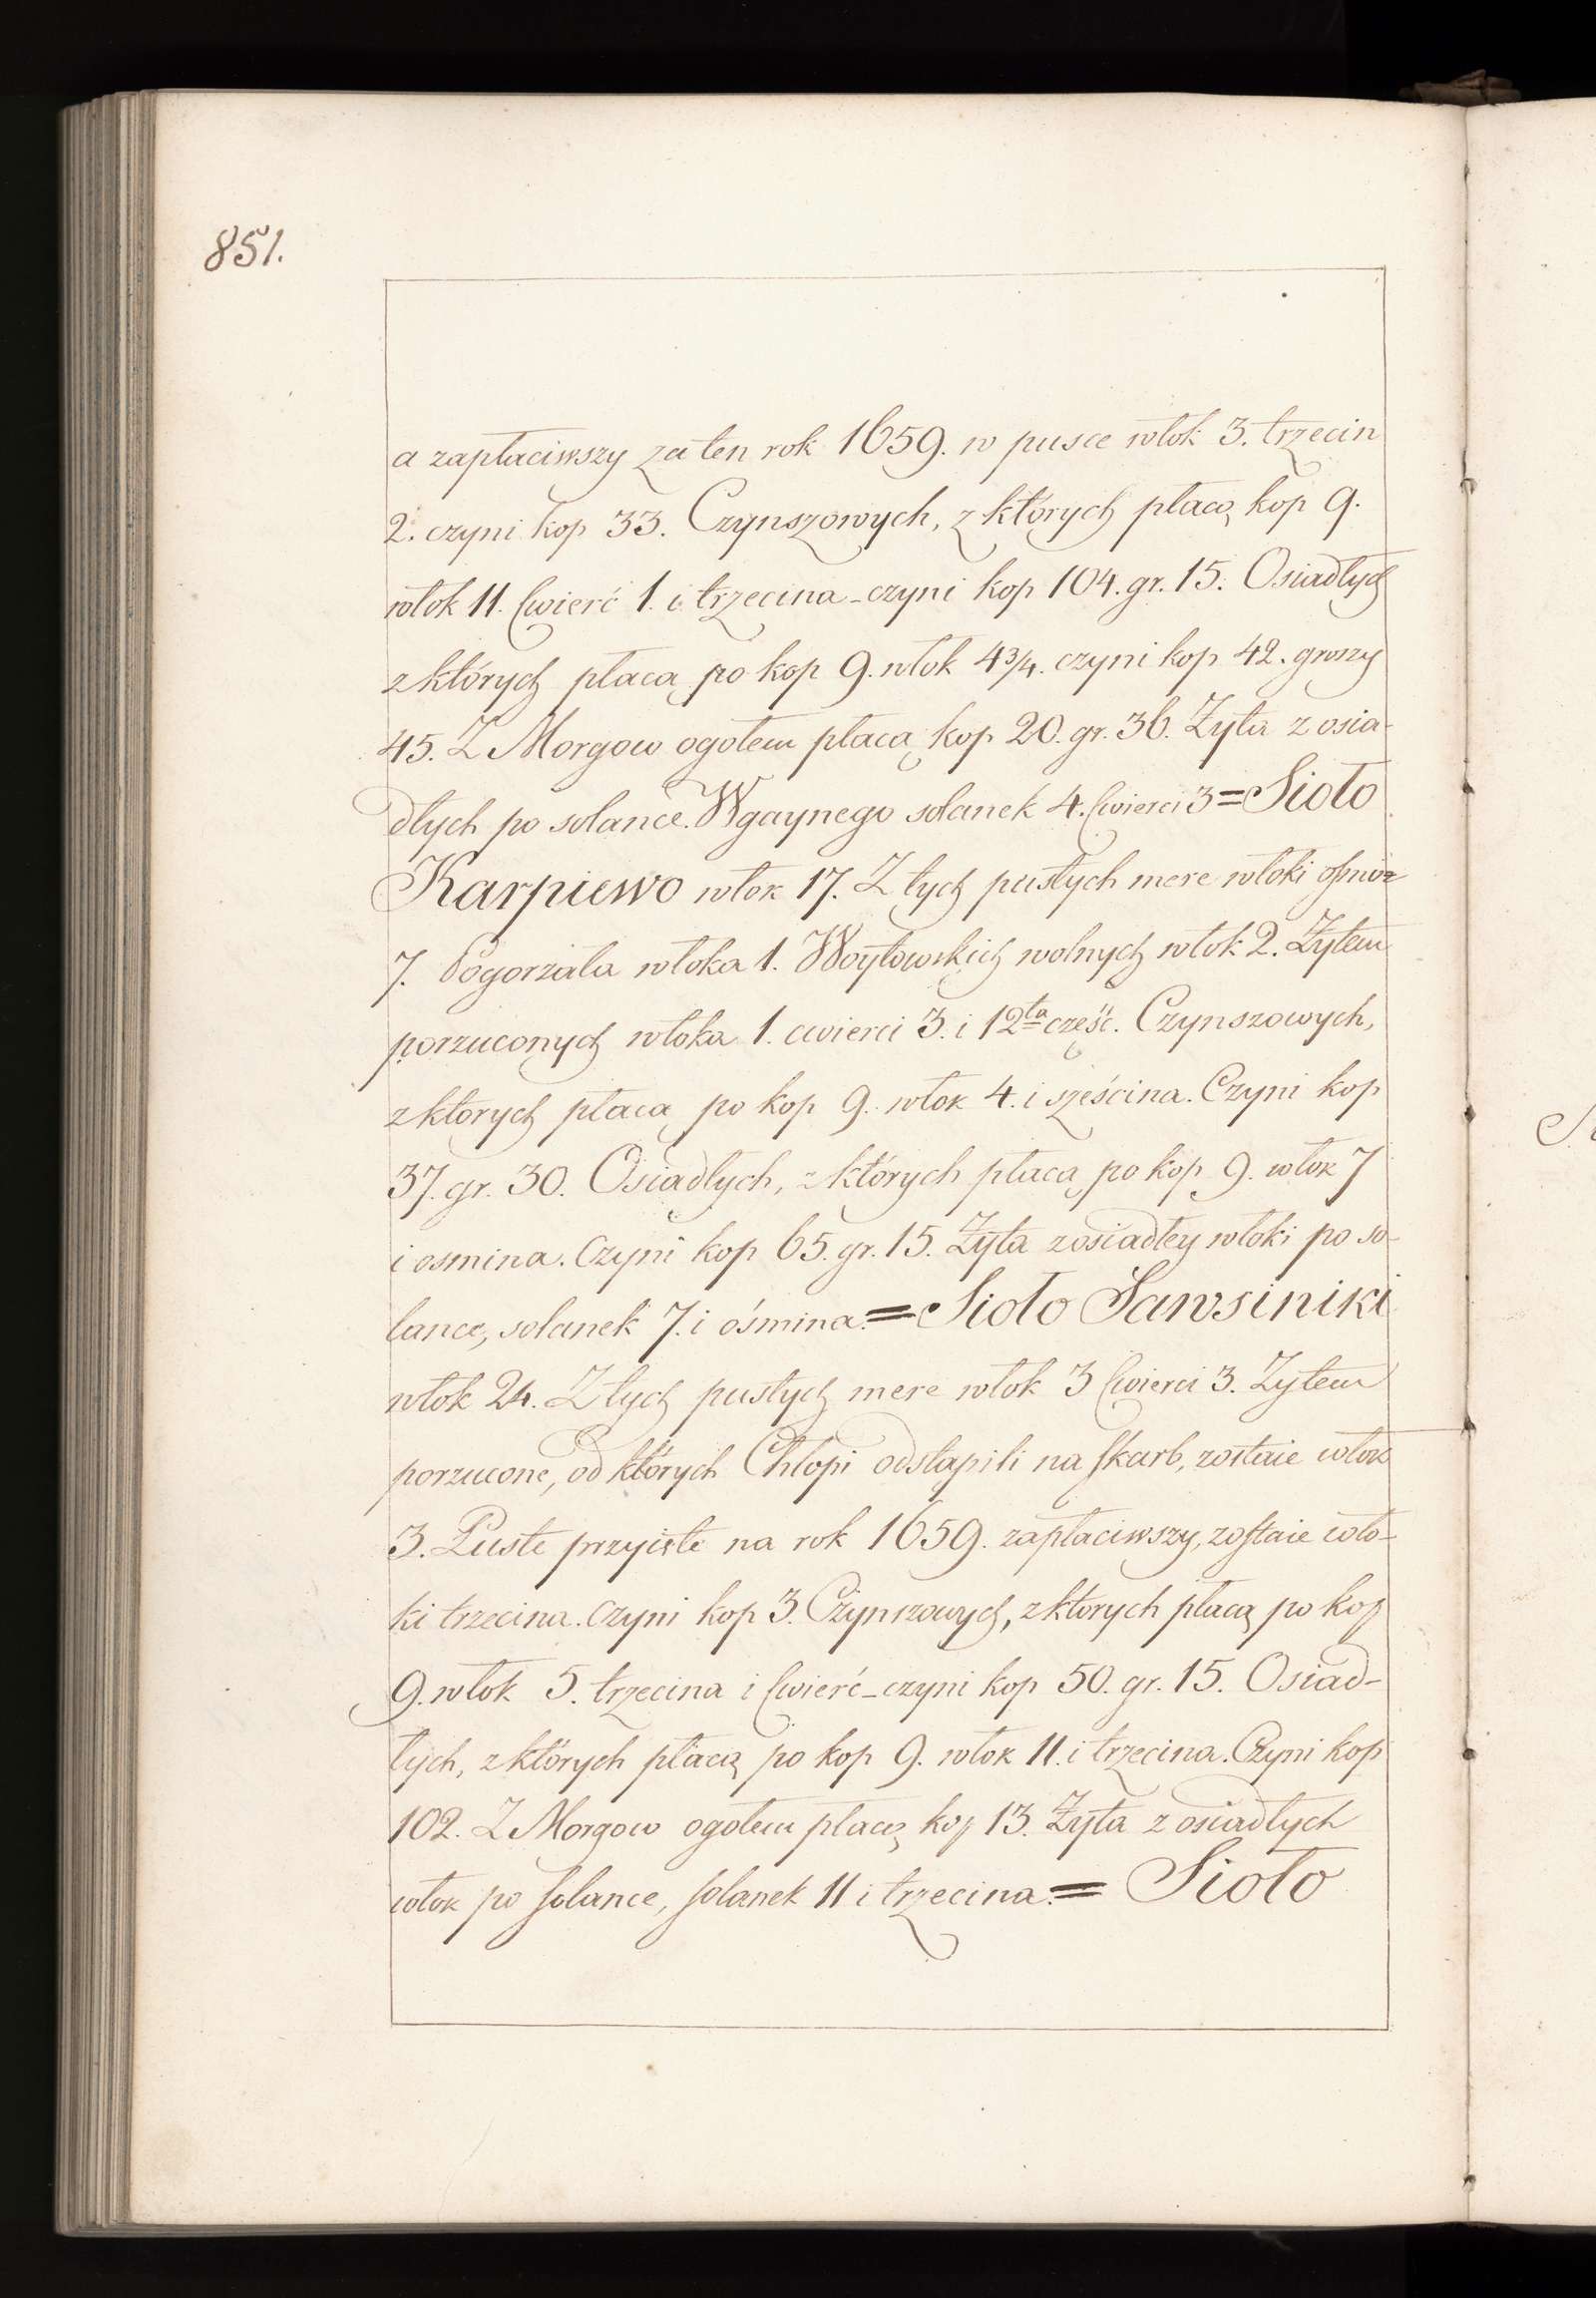 851.
a zapłaciwszy za ten rok 1659. w pusce włok 3. trzecin
2. czyni kop 33. Czynszowych, z których płacą kop 9.
włok 11. Cwierć 1. i trzecina – czyni kop 104. gr. 15. Osiadłych
z których płacą po kop 9. włok 4¾. czyni kop 42. groszy
45. Z Morgow ogołem płacą kop 20. gr. 36. Żyta z osia-
dłych po solance. Wgaynego solanek 4. Cwierci 3 = Sioło
Karpiewo włok 17. Z tych pustych mere włoki
7. Pogorzała włoka 1. Woytowskich wolnych włok 2. Żytem
porzuconych włoka 1. cwierci 3. i 12ta część. Czynszowych,
z ktorych płacą po kop 9. włok 4. i sześcina. Czyni kop
37. gr. 30. Osiadłych, z których płacą po kop 9. włok 7
i osmina. Czyni kop 65. gr. 15. Żyta z osiadłey włoki po so-
lance, solanek 7. i ośmina. = Sioło Sawsiniki
włok 24. Z tych pustych mere włok 3 Cwierci 3. Żytem
porzucone, od których Chłopi odstąpili na skarb, zostaie włok
3. Puste przyięte na rok 1659. zapłaciwszy, zostaie wło-
ki trzecina. czyni kop 3. Czynszowych, z ktorych płacą po kop
9. włok 5. trzecina i Cwierć – czyni kop 50. gr. 15. Osiad-
łych, z których płacą po kop 9. włok 11. i trzecina. Czyni kop
102. Z Morgow ogołem płacą kop 13. Żyta z osiadłych
włok po solance, solanek 11 i trzecina. = Sioło